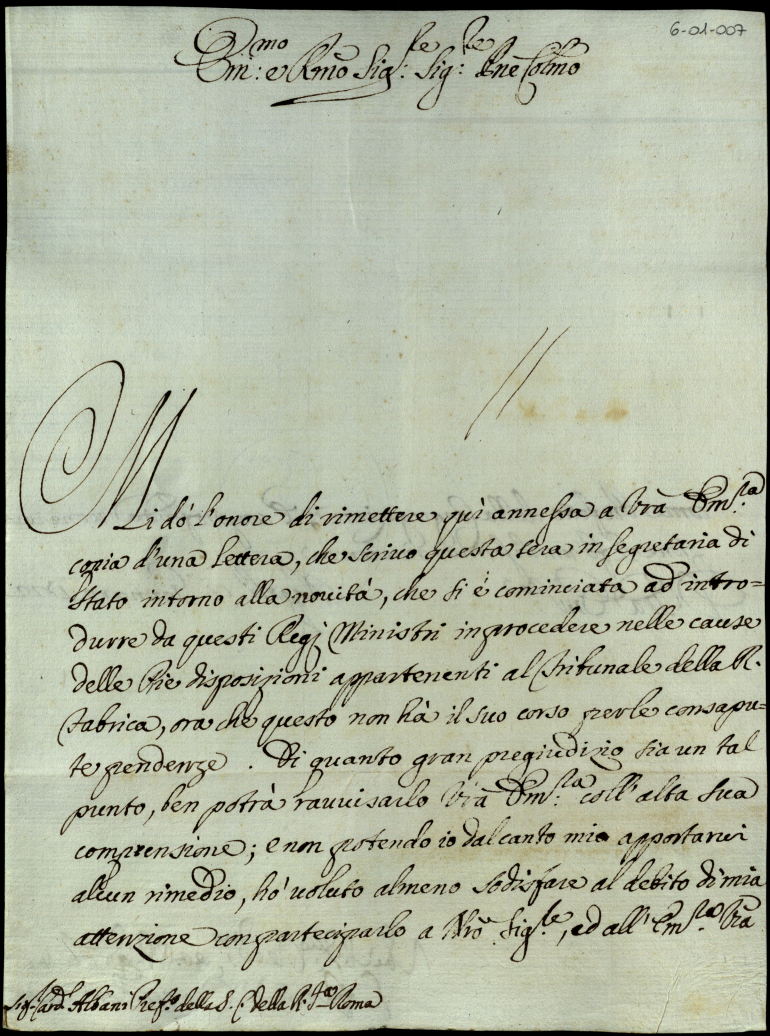 6-01-007
Em:mo e Rmõ Sig:re Sig:re Pne Colmo
Mi dò l'onore di rimettere qui annessa a Vrã Em:za
copia d'una lettera, che scrivo questa sera in segretaria di
Stato intorno alla novità, che si è cominciata ad intro=
durre da questi Regj Ministri in procedere nelle cause
delle Pie disposizioni appartenenti al Tribunale della R.
Fabrica, ora che questo non hà il suo corso per le consapu=
te pendenze. Di quanto gran pregiudizio sia un tal
punto, ben potrà ravvisarlo Vrã Em:za coll'alta sua
comprensione; e non potendo io dal canto mio apportarvi
alcun rimedio, hò voluto almeno sodisfare al debito di mia
attenzione con parteciparlo a Nrõ Sig:re, ed all'Em:za Vrã
Sig:r Card:l Albani Pref:o della S. C. della R. F:ca Roma